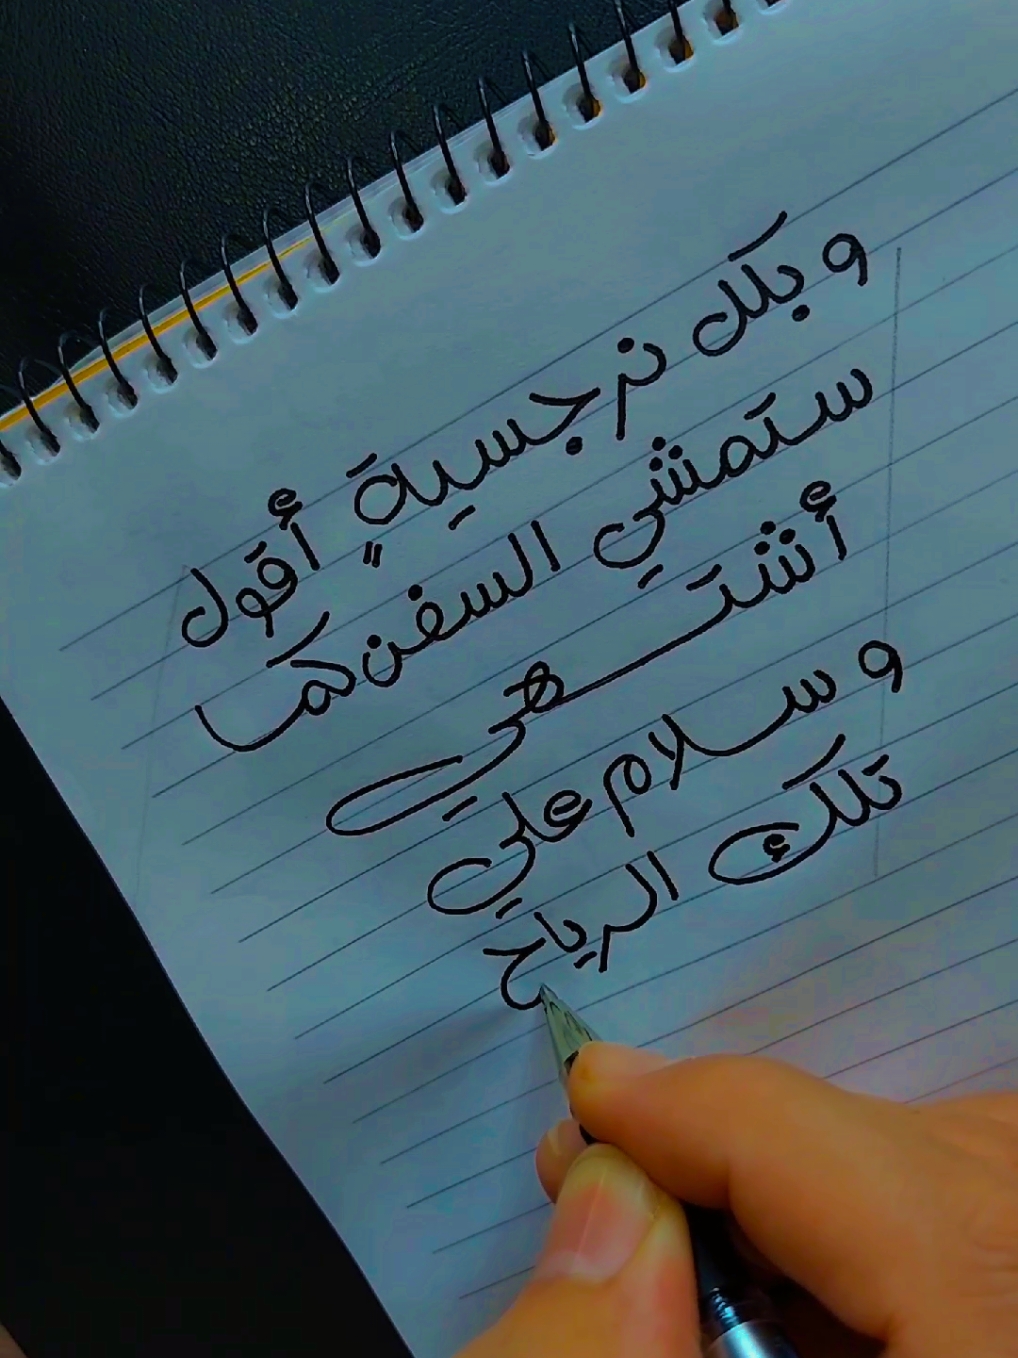 و بكل نرجسيةٍ أقول
ستمشي السفن كما
أشتهي
و سلام علي
تلك الرياح